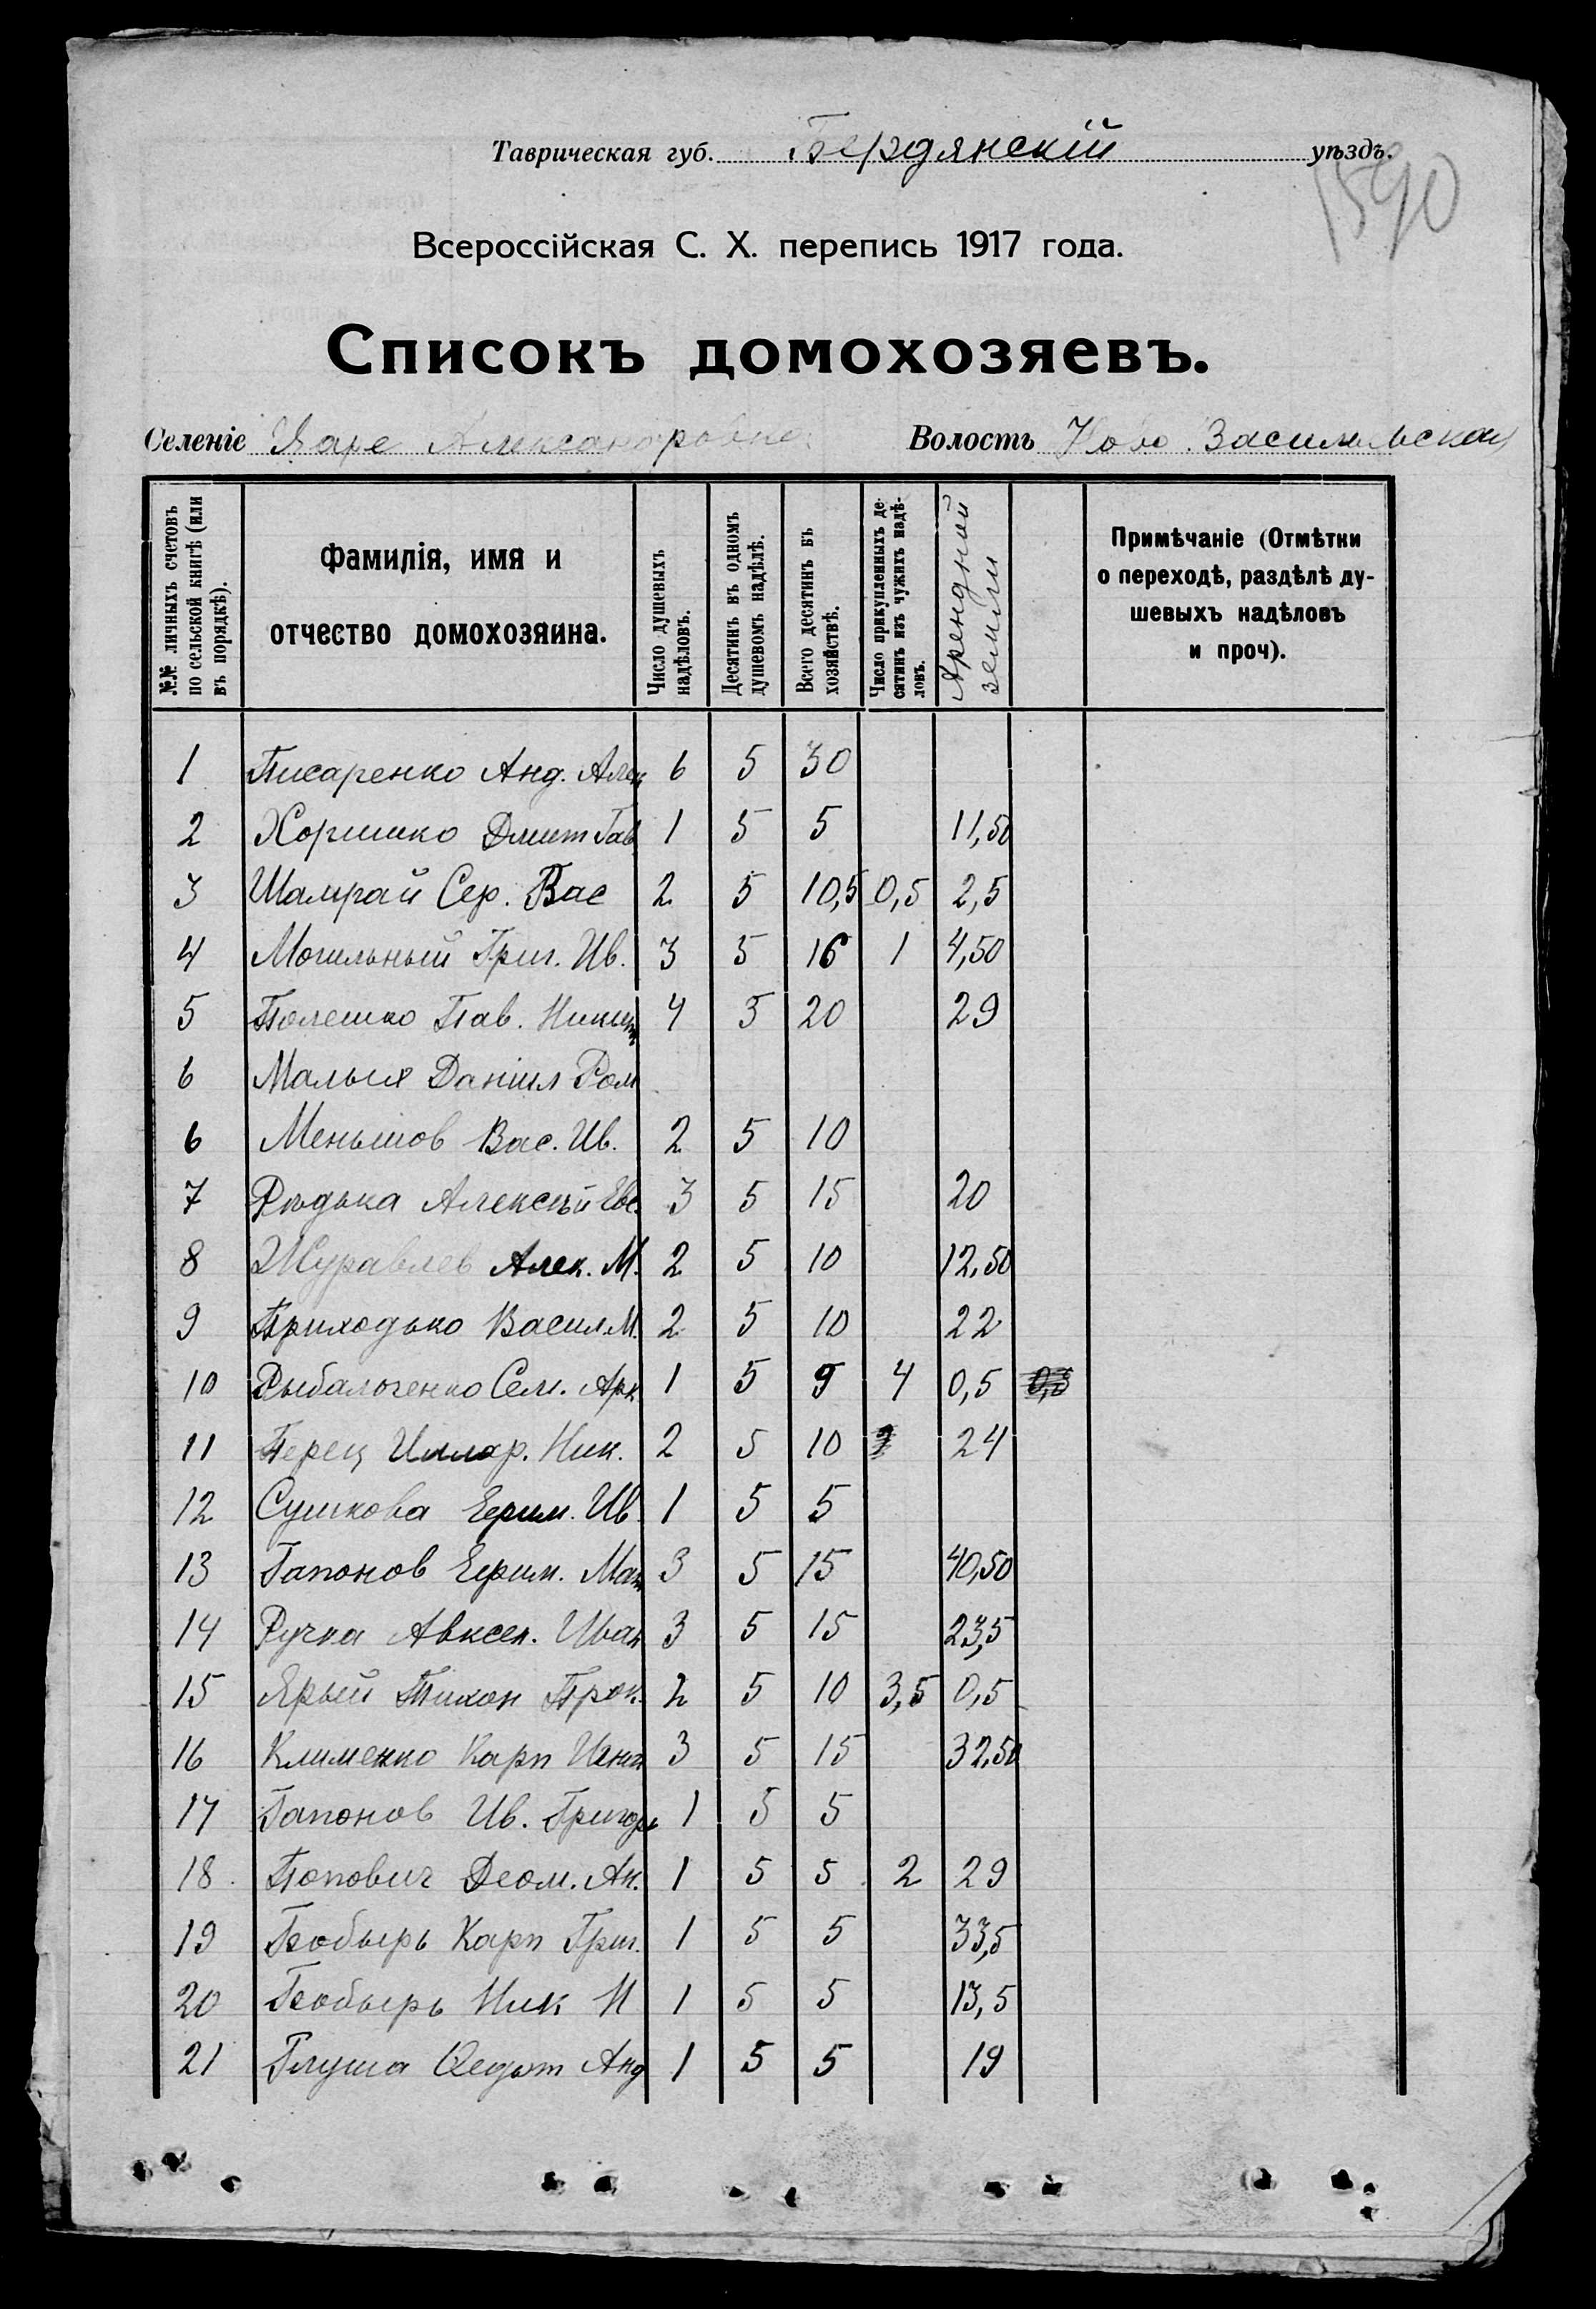 Таврическая губ. Бердянскій уѣздъ.
1590
Всероссійская С. Х. перепись 1917 года.
Списокъ домохозяевъ.
Селеніе Александровка Волость Ново. Васильевская
№№ личныхъ счетовъ по сельской книгѣ (или въ порядкѣ).
Фамилія, имя и отчество домохозяина.
Число душевыхъ надѣловъ.
Десятинъ въ одномъ душевомъ надѣлѣ.
Всего десятинъ въ хозяйствѣ.
Число прикупленныхъ десятинъ изъ чужихъ надѣловъ.
Арендной земли
Примѣчаніе (Отмѣтки о переходѣ, раздѣлѣ душевыхъ надѣловъ и проч).
1 Писаренко Анд. Алек 6 5 30
2 Хоришко Дмит Гав 1 5 5 11,50
3 Шамрай Сер. Вас 2 5 10,5 0,5 2,5
4 Могильный Григ. Ив. 3 5 16 1 4,50
5 Полешко Пав. Никит 4 5 20 29
6 Малых Даніил Ром
6 Меньшов Вас. Ив. 2 5 10
7 Рѣдька Алексѣй Евс. 3 5 15 20
8 Журавлев Алек. М. 2 5 10 12,50
9 Приходько Васил. М. 2 5 10 22
10 Рыбалоченко Сем. Арк 1 5 9 4 0,5
11 Перец Иллар. Ник. 2 5 10 24
12 Сушкова Ефим. Ив 1 5 5
13 Гапонов Ефим. Мак 3 5 15 40,50
14 Ручка Авксен. Иван 3 5 15 23,5
15 Ярый Тихон Прок. 2 5 10 3,5 0,5
16 Клименко Карп 3 5 15 32,50
17 Гапонов Ив. Григор 1 5 5
18 Попович Деом. Ан. 1 5 5 2 29
19 Бобырь Карп Григ. 1 5 5 33,5
20 Бобырь Ник И 1 5 5 13,5
21 Глуша Федот Анд 1 5 5 19